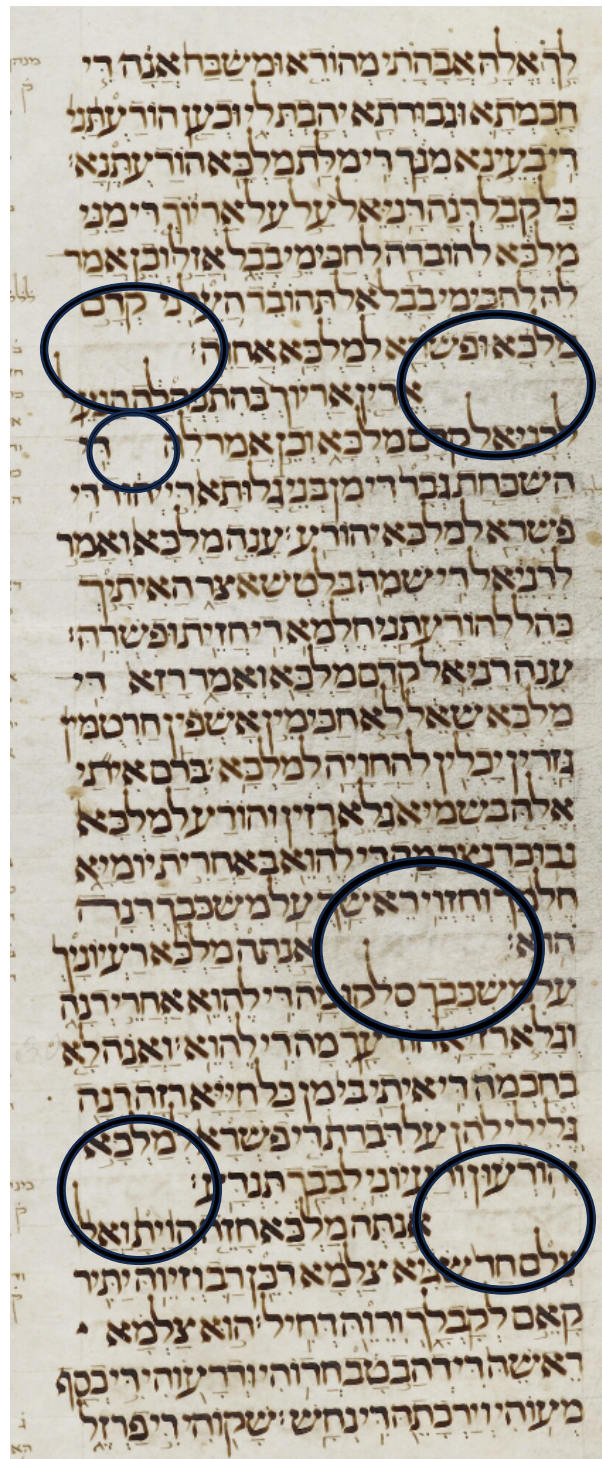 לך אלה אבהתי מהודא ומשבח אנה די
חכמתא וגבורתא יהבת לי וכען הודעתני
די בעינא מנך די מלת מלכא הודעתנא׃
כל קבל דנה דניאל על על אריוך די מני
מלכא להובדה לחכימי בבל אזל וכן אמר
לה לחכימי בבל אל תהובד העלני קדם
מלכא ופשרא למלכא אחוה׃
אדין אריוך בהתבהלה הנעל
לדניאל קדם מלכא וכן אמר לה די
השכחת גבר די מן בני גלותא די יהוד די
פשרא למלכא יהודע׃ ענה מלכא ואמר
לדניאל די שמה בלטשאצר האיתיך
כהל להודעתני חלמא די חזית ופשרה׃
ענה דניאל קדם מלכא ואמר רזא די
מלכא שאל לא חכימין אשפין חרטמין
גזרין יכלין להחויה למלכא׃ ברם איתי
אלה בשמיא גלא רזין והודע למלכא
נבוכדנצר מה די להוא באחרית יומיא
חלמך וחזוי ראישך על משכבך דנה
הוא׃ אנתה מלכא רעיוניך
על משכבך סלקו מה די להוא אחרי דנה
וגלא רזיא הודעך מה די להוא׃ ואנה לא
בחכמה די איתי בי מן כל חייא רזה דנה
גלי לי להן על דברת די פשרא למלכא
יהודעון ורעיוני לבבך תנדע׃
אנתה מלכא חזה הוית ואלו
צלם חד שגיא צלמא דכן רב וזיוה יתיר
קאם לקבלך ורוה דחיל׃ הוא צלמא
ראישה די דהב טב חדוהי ודרעוהי די כסף
מעוהי וירכתה די נחש׃ שקוהי די פרזל